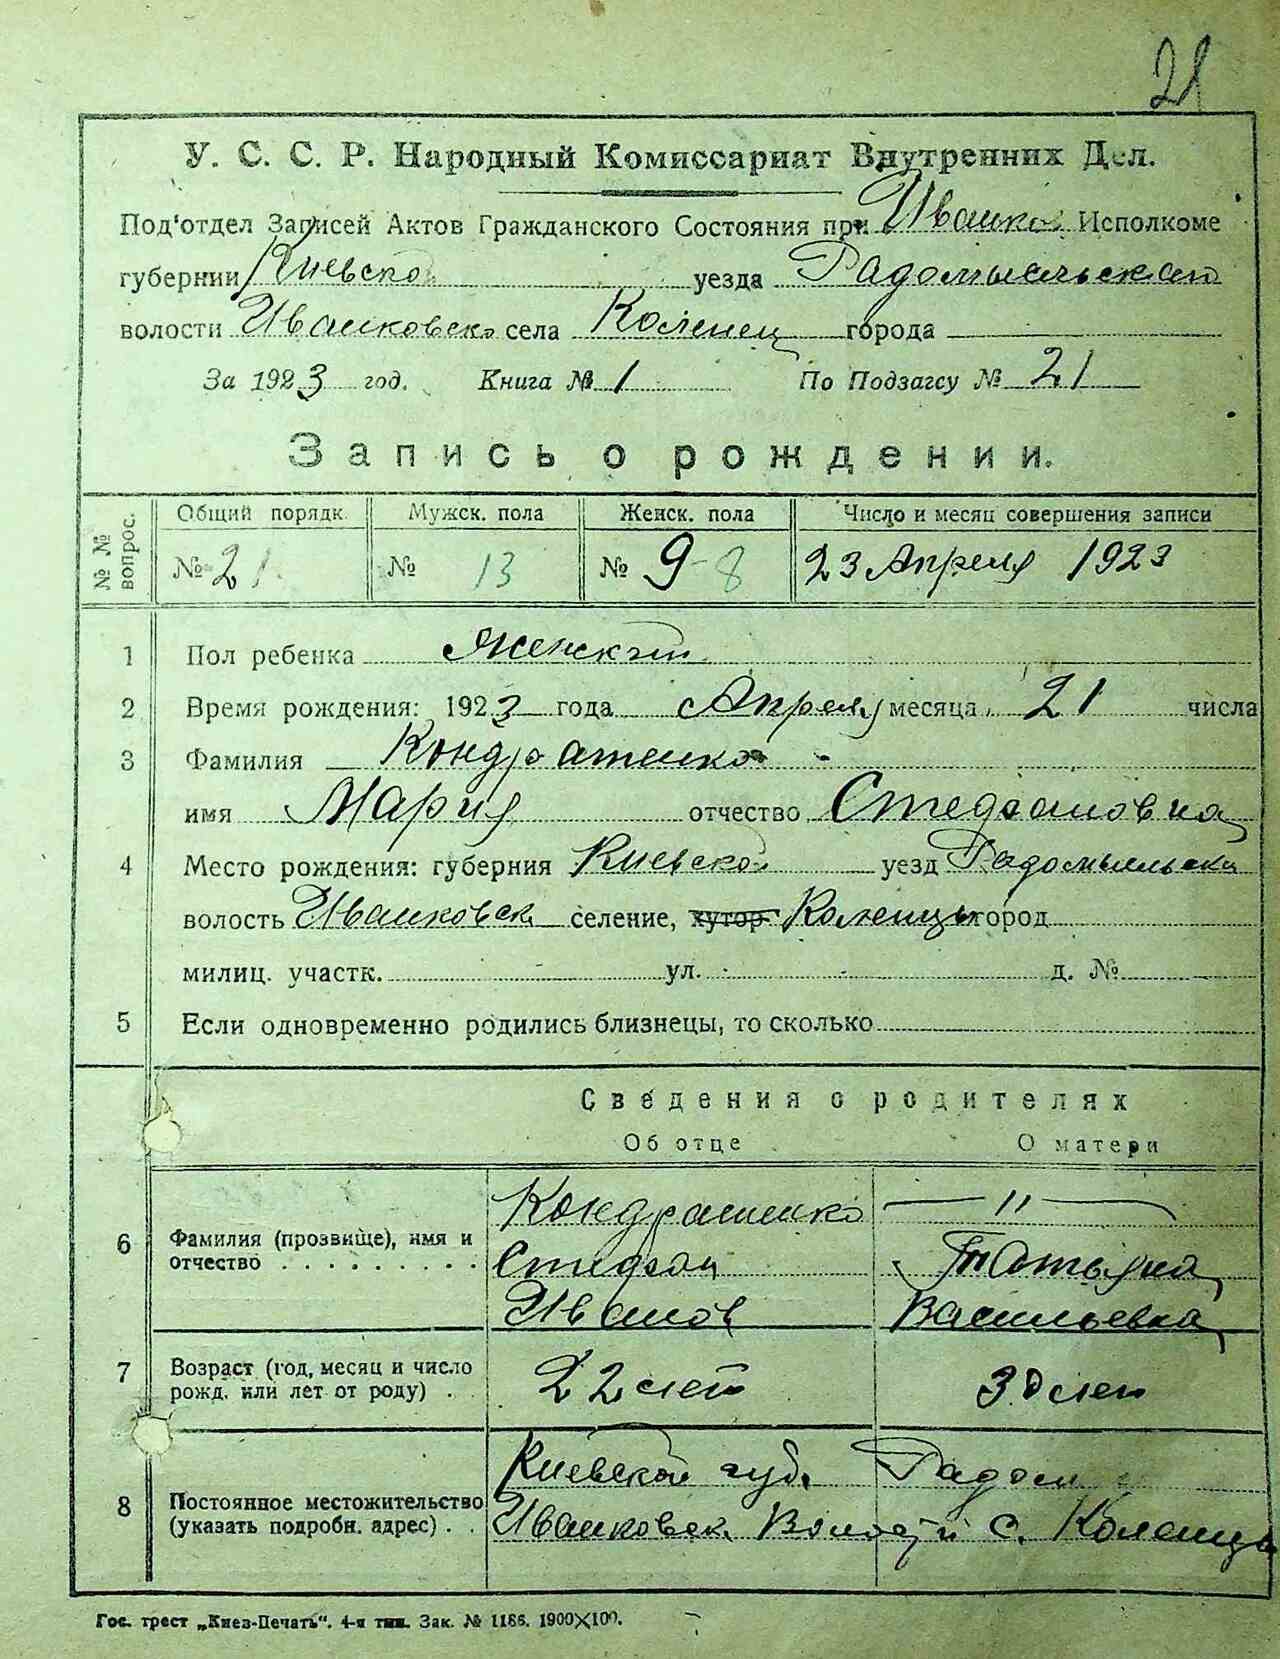 21
У. С. С. Р. Народный Комиссариат Внутренних Дел.
Под'отдел Записей Актов Гражданского Состояния при Иванков Исполкоме
губернии Киевской уезда Радомысльского
волости Иванковско села Коленец города
За 1923 год. Книга № 1 По Подзагсу № 21
Запись о рождении.
№ № вопрос. Общий порядк. Мужск. пола Женск. пола Число и месяц совершения записи
№ 21. № 13 № 9 8 23 Апреля 1923
1 Пол ребенка Женский
2 Время рождения: 1923 года Апреля месяца 21 числа
3 Фамилия Кондратенко
имя Мария отчество Стефановна
4 Место рождения: губерния Киевской уезд Радомысльска
волость Иванковск селение, хутор Коленцы город
милиц. участк. ул. д. №
5 Если одновременно родились близнецы, то сколько
Сведения о родителях
Об отце О матери
6 Фамилия (прозвище), имя и отчество . . . . . . . . . Кондратенко — " —
Стефан Татьяна
Иванов Васильевна
7 Возраст (год, месяц и число рожд. или лет от роду) . . 22 лет 30 лет
8 Постоянное местожительство (указать подробн. адрес) . . Киевской губ. Радом
Иванковск. Волости с. Коленцы
Гос. трест „Киев-Печать“. 4-я тип. Зак. № 1186. 1900×100.